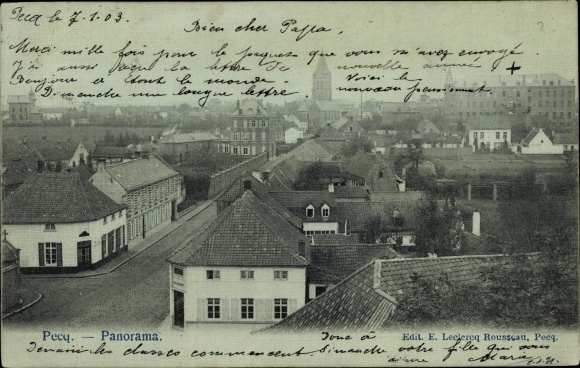 Pecq le 7.1.03.
Bien cher Pappa,
Merci mille fois pour le paquet que vous m'avez envoyé
J'ai aussi reçu la lettre de nouvelle année +
Bonjour à tout le monde. Voici le
Dimanche une longue lettre. nouveau pensionnat
Pecq. — Panorama.
Edit. E. Leclercq Rousseau, Pecq.
les classes commencent dimanche votre fille qui vous
aime Marie